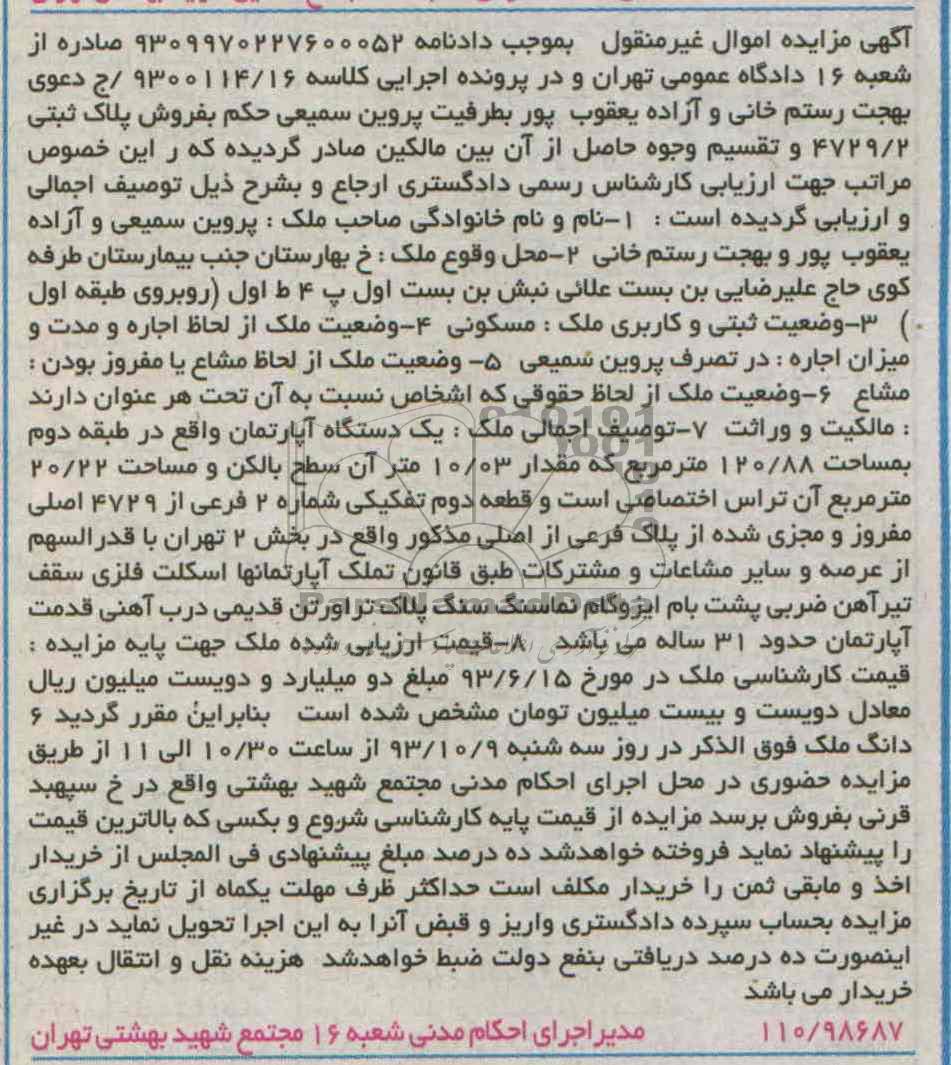 آگهی مزایده اموال غیرمنقول   بموجب دادنامه ۹۳۰۹۹۷۰۲۲۷۶۰۰۰۵۲ صادره از
شعبه ۱۶ دادگاه عمومی تهران و در پرونده اجرایی کلاسه ۹۳۰۰۱۱۴/۱۶ /ج دعوی
بهجت رستم خانی و آزاده یعقوب  پور بطرفیت پروین سمیعی حکم بفروش پلاک ثبتی
۴۷۲۹/۲ و تقسیم وجوه حاصل از آن بین مالکین صادر گردیده که ر این خصوص
مراتب جهت ارزیابی کارشناس رسمی دادگستری ارجاع و بشرح ذیل توصیف اجمالی
و ارزیابی گردیده است :  ۱-نام و نام خانوادگی صاحب ملک : پروین سمیعی و آزاده
یعقوب  پور و بهجت رستم خانی  ۲-محل وقوع ملک : خ بهارستان جنب بیمارستان طرفه
کوی حاج علیرضایی بن بست علائی نبش بن بست اول پ ۴ ط اول (روبروی طبقه اول
)   ۳-وضعیت ثبتی و کاربری ملک : مسکونی  ۴-وضعیت ملک از لحاظ اجاره و مدت و
میزان اجاره : در تصرف پروین سمیعی  ۵- وضعیت ملک از لحاظ مشاع یا مفروز بودن :
مشاع  ۶-وضعیت ملک از لحاظ حقوقی که اشخاص نسبت به آن تحت هر عنوان دارند
: مالکیت و وراثت  ۷-توصیف اجمالی ملک : یک دستگاه آپارتمان واقع در طبقه دوم
بمساحت ۱۲۰/۸۸ مترمربع که مقدار ۱۰/۰۳ متر آن سطح بالکن و مساحت ۲۰/۲۲
مترمربع آن تراس اختصاصی است و قطعه دوم تفکیکی شماره ۲ فرعی از ۴۷۲۹ اصلی
مفروز و مجزی شده از پلاک فرعی از اصلی مذکور واقع در بخش ۲ تهران با قدرالسهم
از عرصه و سایر مشاعات و مشترکات طبق قانون تملک آپارتمانها اسکلت فلزی سقف
تیرآهن ضربی پشت بام ایزوگام نماسنگ سنگ پلاک تراورتن قدیمی درب آهنی قدمت
آپارتمان حدود ۳۱ ساله می باشد   ۸-قیمت ارزیابی شده ملک جهت پایه مزایده :
قیمت کارشناسی ملک در مورخ ۹۳/۶/۱۵ مبلغ دو میلیارد و دویست میلیون ریال
معادل دویست و بیست میلیون تومان مشخص شده است   بنابراین مقرر گردید ۶
دانگ ملک فوق الذکر در روز سه شنبه ۹۳/۱۰/۹ از ساعت ۱۰/۳۰ الی ۱۱ از طریق
مزایده حضوری در محل اجرای احکام مدنی مجتمع شهید بهشتی واقع در خ سپهبد
قرنی بفروش برسد مزایده از قیمت پایه کارشناسی شروع و بکسی که بالاترین قیمت
را پیشنهاد نماید فروخته خواهدشد ده درصد مبلغ پیشنهادی فی المجلس از خریدار
اخذ و مابقی ثمن را خریدار مکلف است حداکثر ظرف مهلت یکماه از تاریخ برگزاری
مزایده بحساب سپرده دادگستری واریز و قبض آنرا به این اجرا تحویل نماید در غیر
اینصورت ده درصد دریافتی بنفع دولت ضبط خواهدشد  هزینه نقل و انتقال بعهده
خریدار می باشد
۱۱۰/۹۸۶۸۷   مدیر اجرای احکام مدنی شعبه ۱۶ مجتمع شهید بهشتی تهران
ParsNamadData